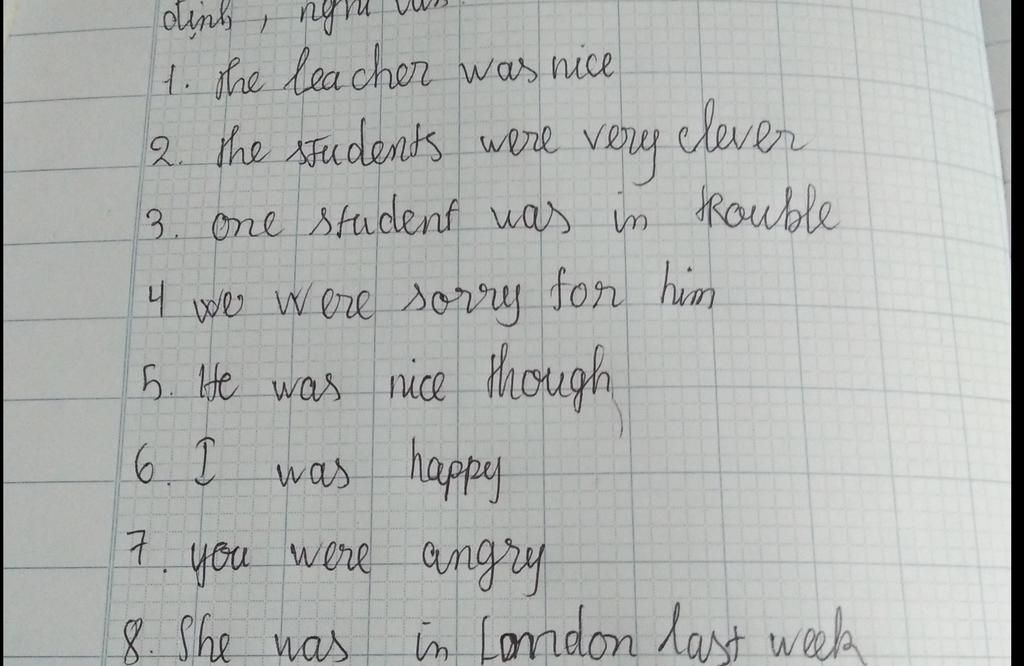 định, nghi
1. the teacher was nice
2. the students were very clever
3. one student was in trouble
4 we were sorry for him
5. He was nice though
6. I was happy
7. you were angry
8. She was in London last week